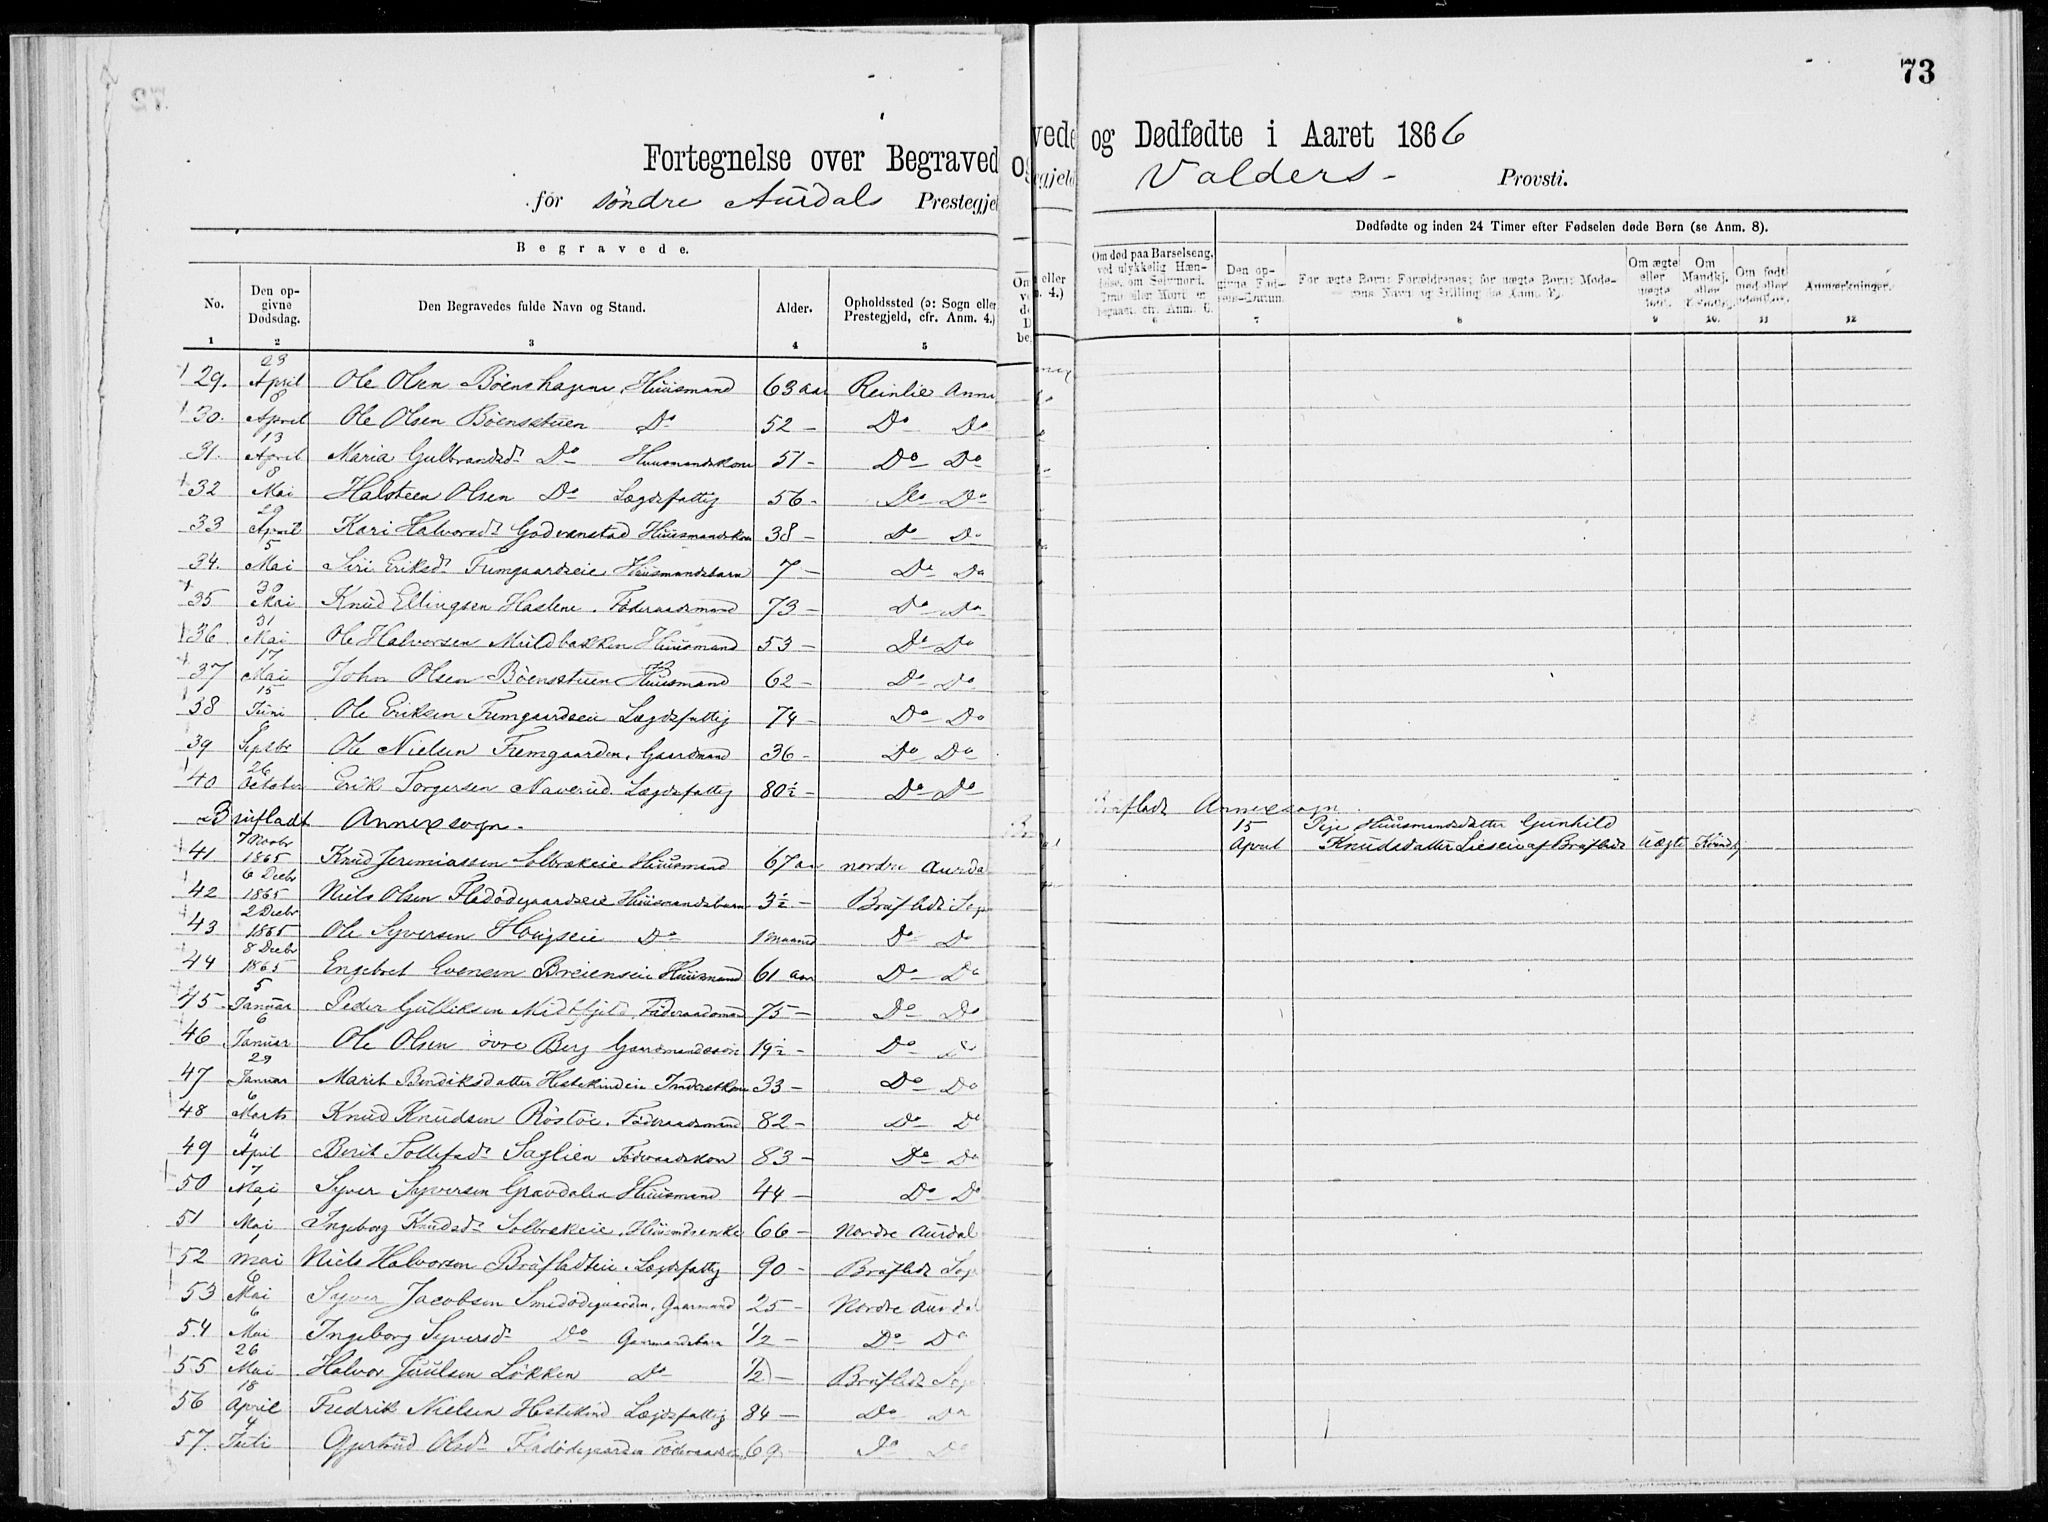 73
Fortegnelse over Begravede og Dødfødte i Aaret 1866
for søndre Aurdals Prestegjeld Valders Provsti.
Begravede.
No. Den opgivne Dødsdag. Den Begravedes fulde Navn og Stand. Alder. Opholdssted (ɔ: Sogn eller Prestegjeld, cfr. Anm. 4.)
1 2 3 4 5
29. 23 April Ole Olsen Bøenshagen, Huusmand 63 aar Reinlie Annex
30. 8 April Ole Olsen Bøensstuen Do 52 - Do Do
31. 13 April Maria Gulbrandsdr Do Huusmandskone 51 - Do Do
32 8 Mai Halsteen Olsen Do Lægdsfattig 56 - Do Do
33 29 April Kari Halvorsdr Godvanstad Huusmandskone 38 - Do Do
34. 5 Mai Siri Eriksdr Fremgaardseie Huusmandsbarn 7 - Do Do
35 30 Mai Knud Ellingsen Haslene. Føderaadsmand 73 - Do Do
36 31 Mai Ole Halvorsen Muldbakken Huusmand 53 - Do Do
37 17 Mai John Olsen Bøensstuen Huusmand 62 - Do Do
38 15 Juni Ole Eriksen Fremgaardseie Lægdsfattig 74 - Do Do
39 6 Septbr Ole Nielsen Fremgaarden, Gaardmand 36 - Do Do
40 26 October Erik Torgersen Naverud Lægdsfattig 80½ - Do Do
Brufladt Annexsogn.
41 7 Novbr 1865 Knud Jeremiassen Solbrekeie Huusmand 67 aar nordre Aurdal
42 6 Decbr 1865 Niels Olsen Fladødegaardseie Huusmandsbarn 3½ - Brufladt Sogn
43 2 Decbr 1865 Ole Syversen Hougseie Do 1 maaned Do Do
44 8 Decbr 1865 Engebret Evensen Breienseie Huusmand 61 aar Do Do
45 5 Januar Peder Gulliksen Midtfjeld, Føderaadsmand 75 - Do Do
46 6 Januar Ole Olsen øvre Berg Gaardmandssøn 19½ - Do Do
47 29 Januar Marit Bendiksdatter Hestekindeie Inderstkone 33 - Do Do
48 6 Marts Knud Knudsen Røstøe. Føderaadsmand 82 - Do Do
49 4 April Berit Tollefsdr Saglien Føderaadskone 83 - Do Do
50 7 Mai Syver Syversen Gravdalen Huusmand 44 - Do Do
51 1 Mai Ingeborg Knudsdr Solbrekeie, Huusmdsenke 66 - Nordre Aurdal
52 1 Mai Niels Halvorsen Brufladteie. Lægdsfattig 90 - Brufladt Sogn
53 6 Mai Syver Jacobsen Smedødegaarden, Gaarmand 25 - Nordre Aurdal
54 6 Mai Ingeborg Syversdr Do Gaarmandsbarn 1/2 - Do Do
55 26 Mai Halvor Juulsen Løkken Do 1/2 - Brufladt Sogn
56 18 April Fredrik Nielsen Hestekind Lægdsfattig 84 - Do Do
57. 4 Juli Gjertrud Olsdr Fladødegaarden 69 Do Do
Dødfødte og inden 24 Timer efter Fødselen døde Børn (se Anm. 8).
Om død paa Barselseng, ved ulykkelig Hændelse, om Selvmord, Drab eller Mord er begaaet, cfr. Anm. 6.
Den opgivne Fødsels-Datum. For ægte Børn: Forældrenes; for uægte Børn: Moderens Navn og Stilling (se Anm. 9). Om ægte eller uægte født. Om Mandkj. eller Kvindekj. Om født med eller Anmærkninger.
6 7 8 9 10. 11 12
Brufladt Annexsogn.
15 April Pige Huusmandsdatter Gunhild
Knudsdatter Lieseie af Brufladt Uægte Kvindkj